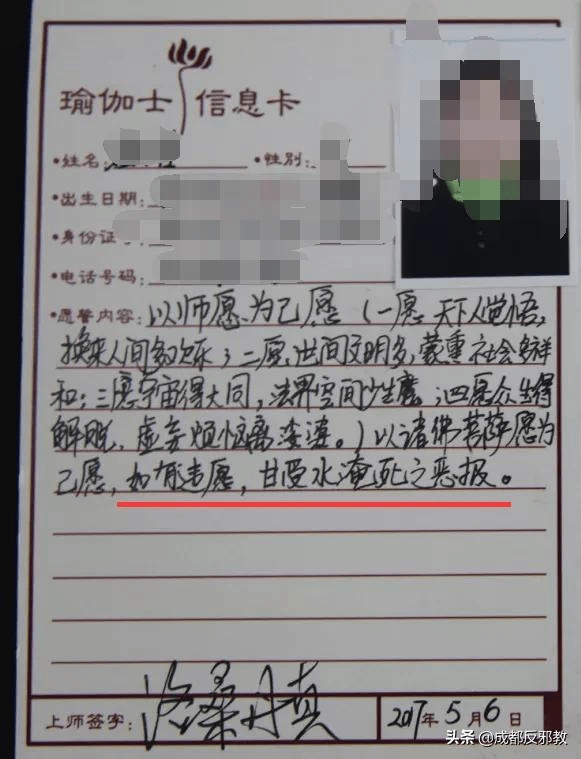 瑜伽士 信息卡
•姓名: •性别:
•出生日期:
•身份证号
•电话号码:
•愿誓内容: 以师愿为己愿（一愿天下人觉悟，
换来人间多欢乐；二愿世间文明多，蒙熏社会多祥
和；三愿宇宙得大同，法界空间少生魔；四愿众生得
解脱，虚妄烦恼离娑婆。）以诸佛菩萨愿为
己愿，如有违愿，甘受水淹死之恶报。
上师签字: 洛桑丹真 2017年5月6日
头条 @成都反邪教